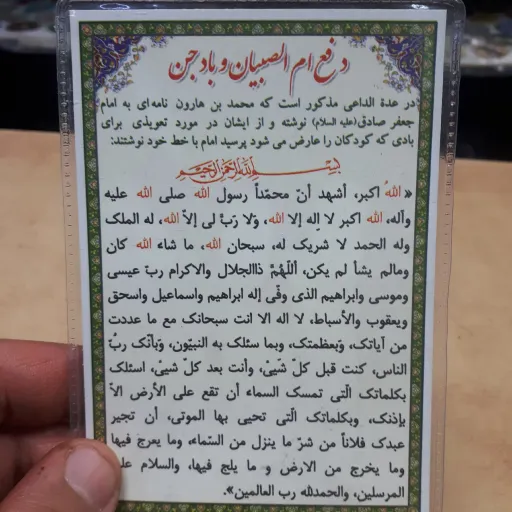 دفع ام الصبیان و باد جن
در عدة الداعی مذکور است که محمد بن هارون نامه‌ای به امام
جعفر صادق(علیه السلام) نوشته و از ایشان در مورد تعویذی برای
بادی که کودکان را عارض می شود پرسید امام با خط خود نوشتند:
بسم الله الرحمن الرحیم
« اللهُ اکبر، أشهد أنّ محمّداً رسول الله صلی الله علیه
وآله، الله اکبر لا اِله إلا الله، وَلا رَبَّ لی إلاّ الله، له الملک
وله الحمد لا شریک له، سبحان الله، ما شاء الله کان
ومالم یشأ لم یکن، أللّهُمَّ ذاالجلال والاکرام ربّ عیسی
وموسی وابراهیم الذی وفّی إله ابراهیم واسماعیل واسحق
ویعقوب والأسباط، لا اله الا انت سبحانک مع ما عددت
من آیاتک، وَبعظمتک، وبما سئلک به النبیّون، وَبأنّک ربُّ
الناس، کنت قبل کلّ شَییْ، وأنت بعد کلّ شییْ، اسئلک
بکلماتک الّتی تمسک السماء أن تقع علی الأرض الاّ
بإذنک، وبکلماتک الّتی تحیی بها الموتی، أن تجیر
عبدک فلاناً من شرّ ما ینزل من السّماء، وما یعرج فیها
وما یخرج من الارض و ما یلج فیها، والسلام علی
المرسلین، والحمدلله رب العالمین».